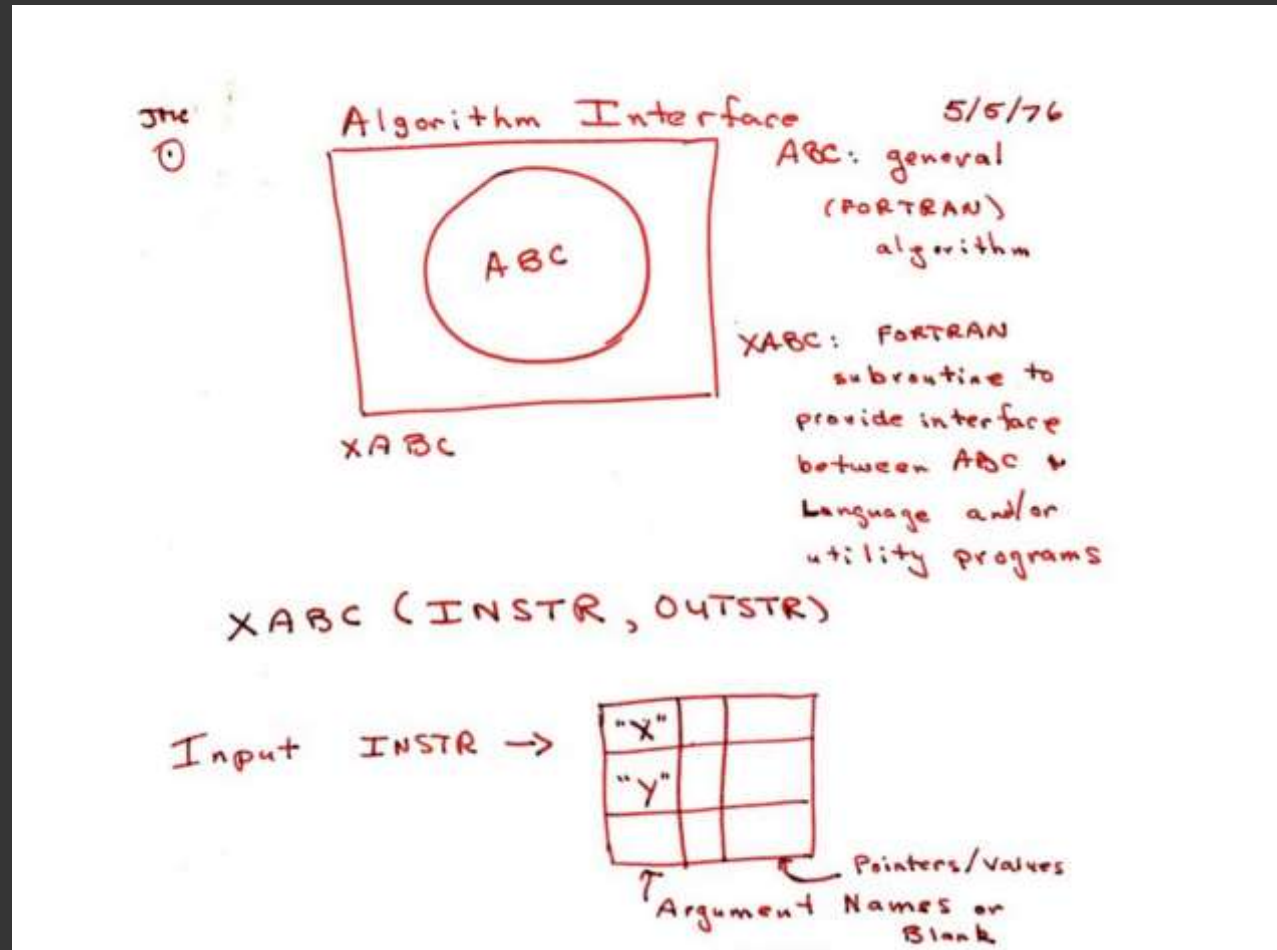 JMC
1
Algorithm Interface
5/5/76
ABC
ABC: general
(FORTRAN)
algorithm
XABC
XABC: FORTRAN
subroutine to
provide interface
between ABC &
Language and/or
utility programs
XABC (INSTR, OUTSTR)
Input INSTR →
"X"
"Y"
Pointers/Values
Argument Names or
Blank